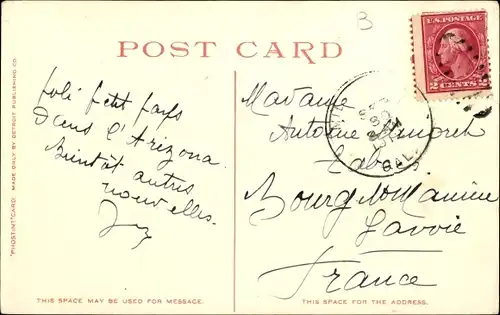 B
POST CARD
U.S. POSTAGE
2 CENTS 2
Joli petit pays
dans l'Arizona
Bientôt autres
nouvelles.
Madame
Antoine
Bourg St Maurice
Savoie
France
CAL.
"PHOSTINT" CARD. MADE ONLY BY DETROIT PUBLISHING CO.
THIS SPACE MAY BE USED FOR MESSAGE.
THIS SPACE IS FOR THE ADDRESS.